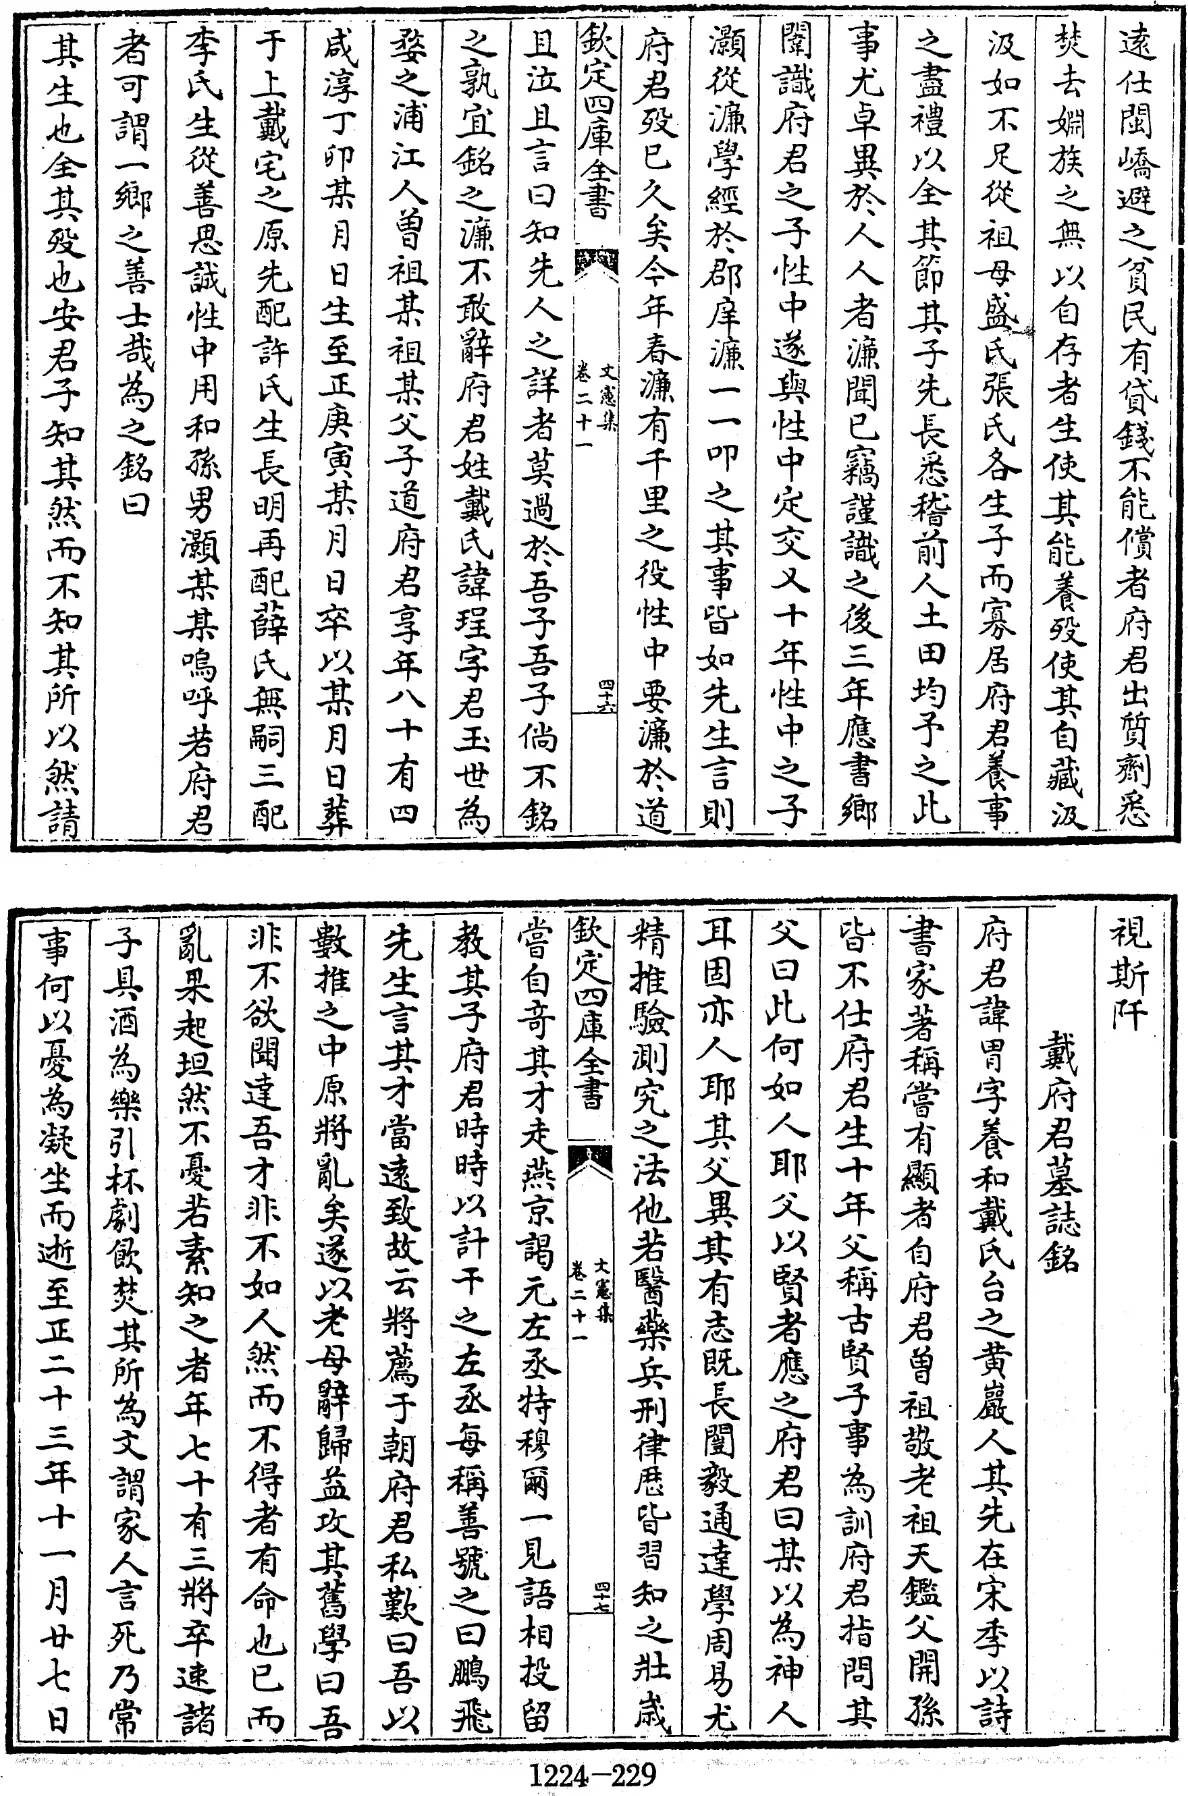 遠仕閩嶠避之貧民有貸錢不能償者府君出質劑悉
焚去婣族之無以自存者生使其能養殁使其自藏汲
汲如不足從祖母盛氏張氏各生子而寡居府君養事
之盡禮以全其節其子先長悉稽前人土田均予之此
事尤卓異於人人者濂聞已竊謹識之後三年應書鄉
闈識府君之子性中遂與性中定交又十年性中之子
灝從濂學經於郡庠濂一一叩之其事皆如先生言則
府君殁已久矣今年春濂有千里之役性中要濂於道
欽定四庫全書
文憲集
卷二十一
四十六
且泣且言曰知先人之詳者莫過於吾子吾子倘不銘
之孰宜銘之濂不敢辭府君姓戴氏諱珵字君玉世為
婺之浦江人曽祖某祖某父子道府君享年八十有四
咸淳丁卯某月日生至正庚寅某月日卒以某月日葬
于上戴宅之原先配許氏生長明再配薛氏無嗣三配
李氏生從善思誠性中用和孫男灝某某嗚呼若府君
者可謂一鄉之善士哉為之銘曰
其生也全其殁也安君子知其然而不知其所以然請
視斯阡
戴府君墓誌銘
府君諱胄字養和戴氏台之黄巖人其先在宋季以詩
書家著稱嘗有顯者自府君曽祖敬老祖天鑑父開孫
皆不仕府君生十年父稱古賢子事為訓府君指問其
父曰此何如人耶父以賢者應之府君曰某以為神人
耳固亦人耶其父異其有志既長闓毅通達學周易尤
精推驗測究之法他若醫藥兵刑律厯皆習知之壯歲
欽定四庫全書
文憲集
卷二十一
四十七
嘗自竒其才走燕京謁元左丞特穆爾一見語相投留
教其子府君時時以計干之左丞每稱善號之曰鵬飛
先生言其才當遠致故云將薦于朝府君私歎曰吾以
數推之中原將亂矣遂以老母辭歸益攻其舊學曰吾
非不欲聞達吾才非不如人然而不得者有命也已而
亂果起坦然不憂若素知之者年七十有三將卒速諸
子具酒為樂引杯劇飲焚其所為文謂家人言死乃常
事何以憂為凝坐而逝至正二十三年十一月廿七日
1224—229